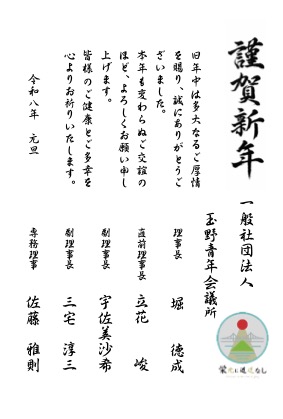 謹賀新年
旧年中は多大なるご厚情
を賜り、誠にありがとうご
ざいました。
本年も変わらぬご交誼の
ほど、よろしくお願い申し
上げます。
皆様のご健康とご多幸を
心よりお祈りいたします。
令和八年 元旦
一般社団法人
玉野青年会議所
理事長 堀 徳成
直前理事長 立花 峻
副理事長 宇佐美沙希
副理事長 三宅 淳三
専務理事 佐藤 雅則
栄光に近道なし